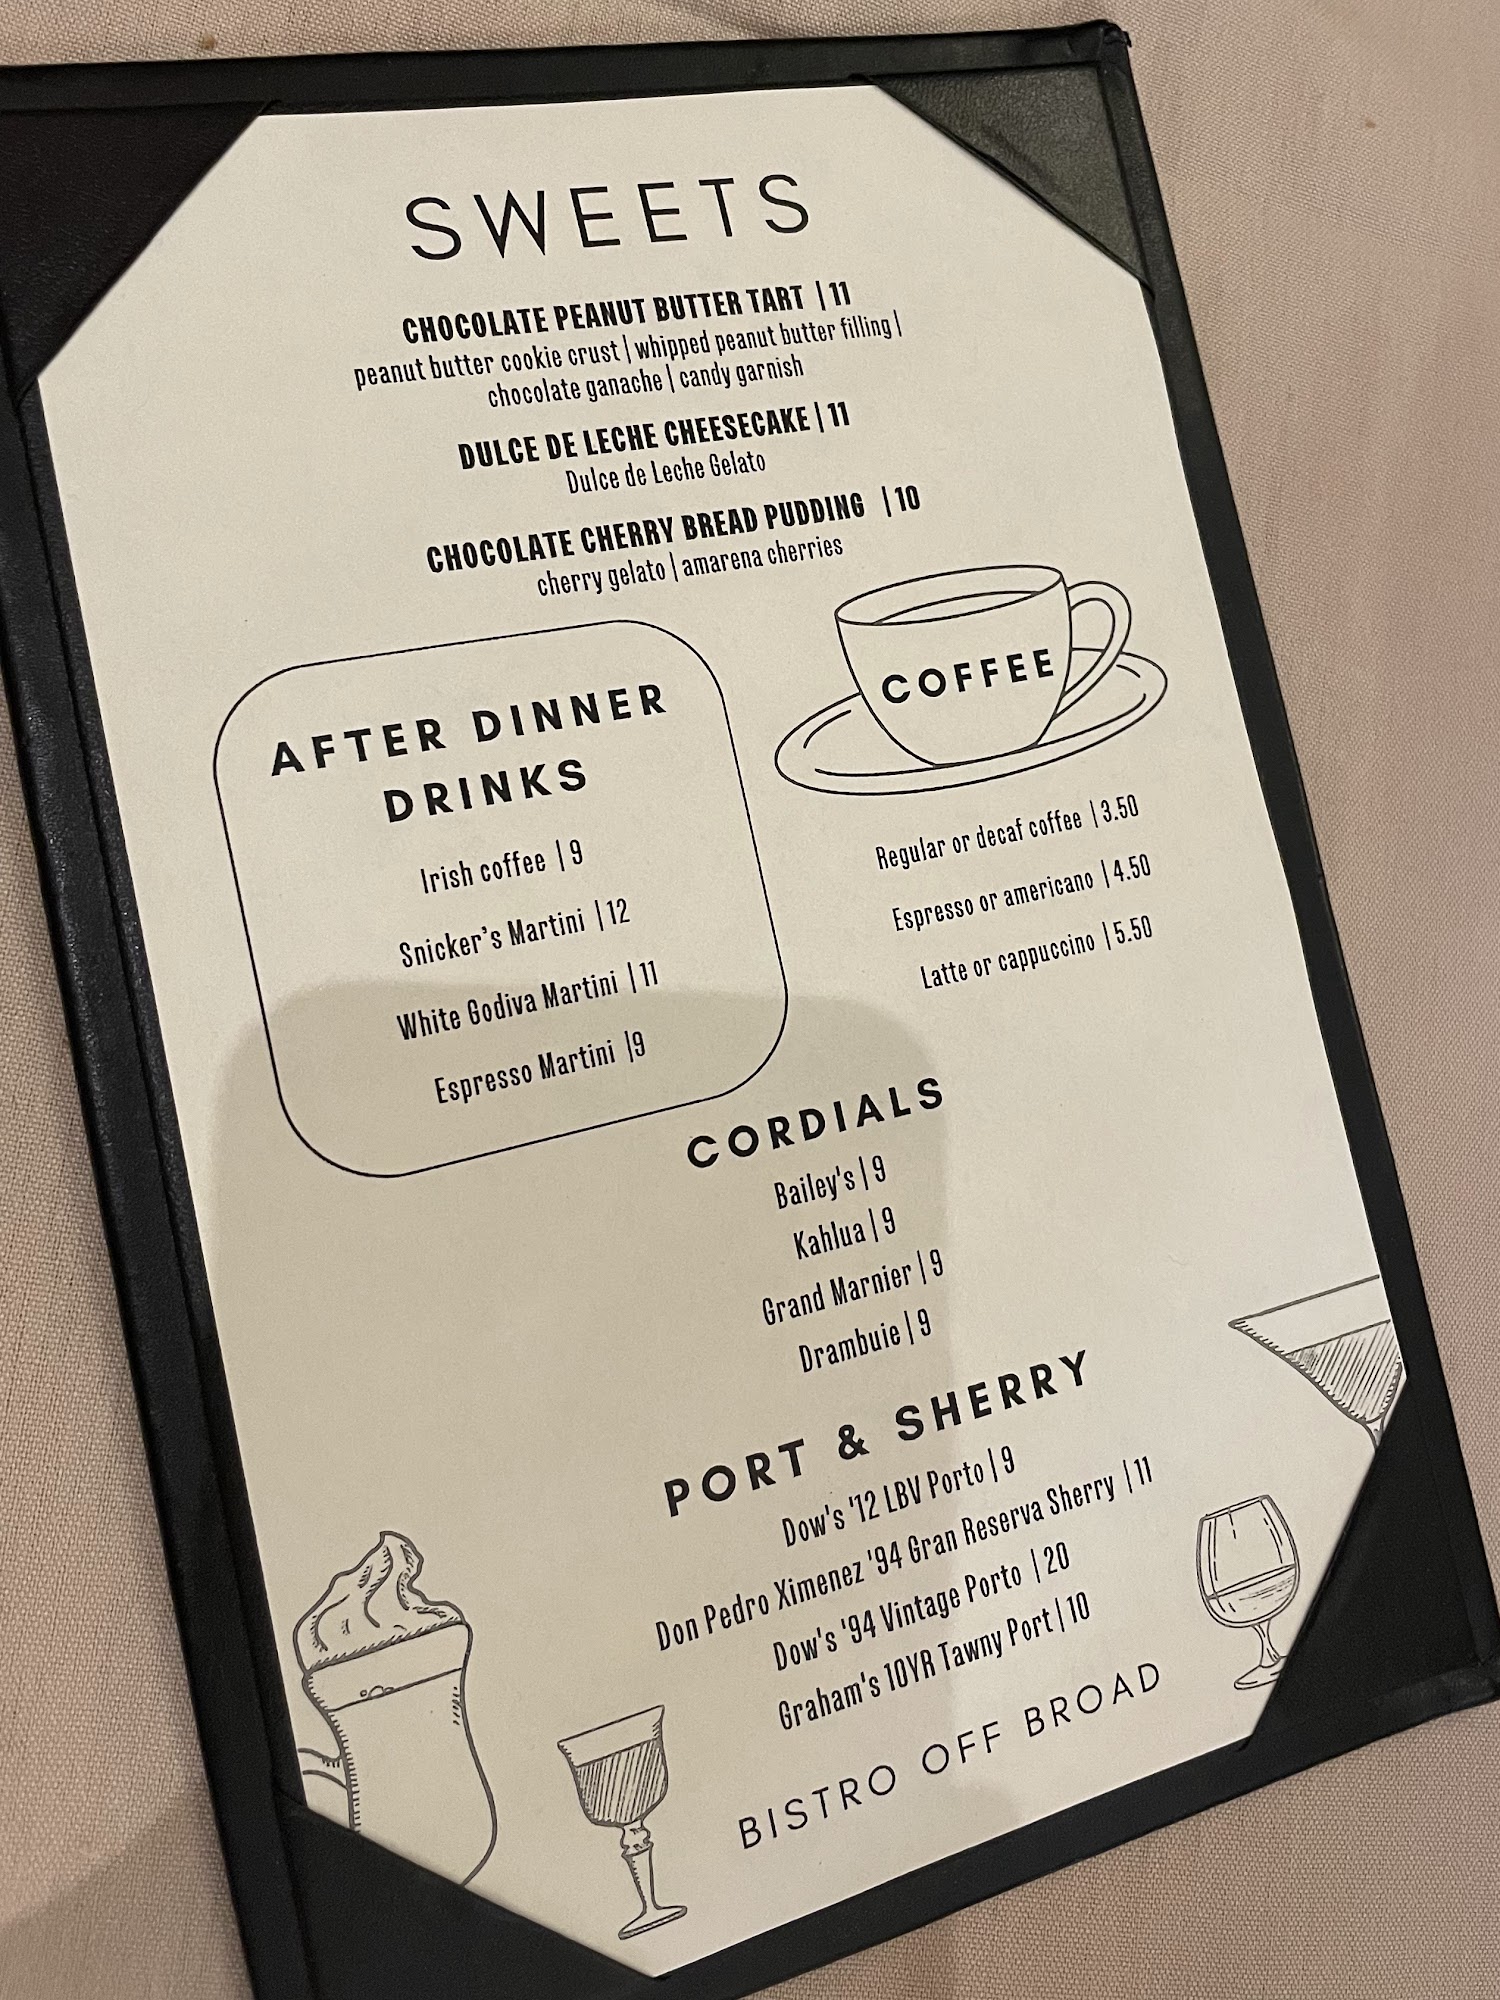 SWEETS
CHOCOLATE PEANUT BUTTER TART | 11
peanut butter cookie crust | whipped peanut butter filling |
chocolate ganache | candy garnish
DULCE DE LECHE CHEESECAKE | 11
Dulce de Leche Gelato
CHOCOLATE CHERRY BREAD PUDDING | 10
cherry gelato | amarena cherries
AFTER DINNER
DRINKS
Irish coffee | 9
Snicker's Martini | 12
White Godiva Martini | 11
Espresso Martini |9
COFFEE
Regular or decaf coffee | 3.50
Espresso or americano | 4.50
Latte or cappuccino | 5.50
CORDIALS
Bailey's | 9
Kahlua | 9
Grand Marnier | 9
Drambuie | 9
PORT & SHERRY
Dow's '12 LBV Porto | 9
Don Pedro Ximenez '94 Gran Reserva Sherry | 11
Dow's '94 Vintage Porto | 20
Graham's 10YR Tawny Port | 10
BISTRO OFF BROAD